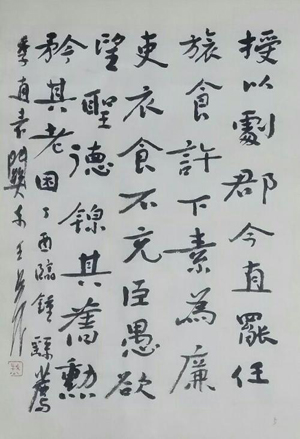 授以劇郡今直罷任
旅食許下素為廉
吏衣食不充臣愚欲
望聖德錄其舊勳
矜其老困丁酉臨鍾繇薦
季直表